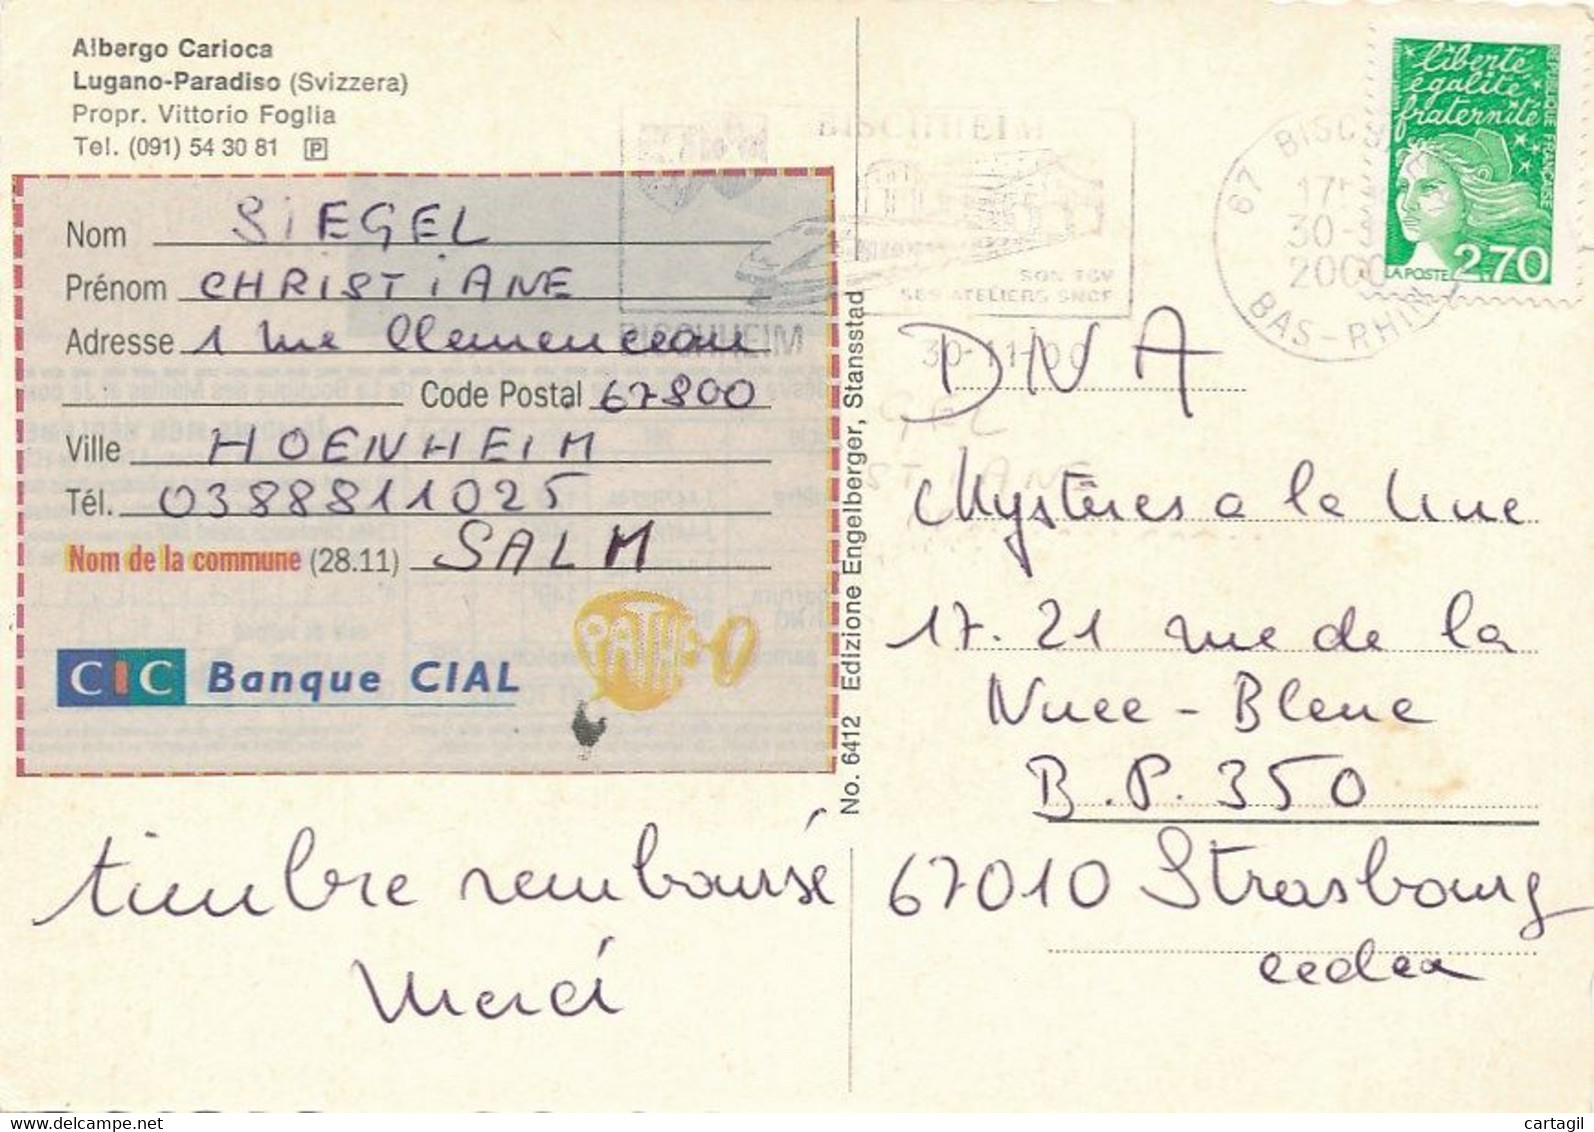 Albergo Carioca
Lugano-Paradiso (Svizzera)
Propr. Vittorio Foglia
Tel. (091) 54 30 81 P
Nom SIEGEL
Prénom CHRISTIANE
Adresse 1 rue Clemenceau
Code Postal 67800
Ville HOENHEIM
Tél. 0388811025
Nom de la commune (28.11) SALM
CIC Banque CIAL
PATHÉ
timbre remboursé
Merci
No. 6412 Edizione Engelberger, Stansstad
BISCHHEIM
SON TGV
SES ATELIERS SNCF
BISCHHEIM
30-11-00
67 BISC
17H
30-
2000
BAS-RHIN
liberté
égalité
fraternité
REPUBLIQUE FRANÇAISE
LA POSTE 2,70
DNA
Mystères à la Une
17.21 rue de la
Nuee-Bleue
B.P. 350
67010 Strasbourg
cedex
cartagil